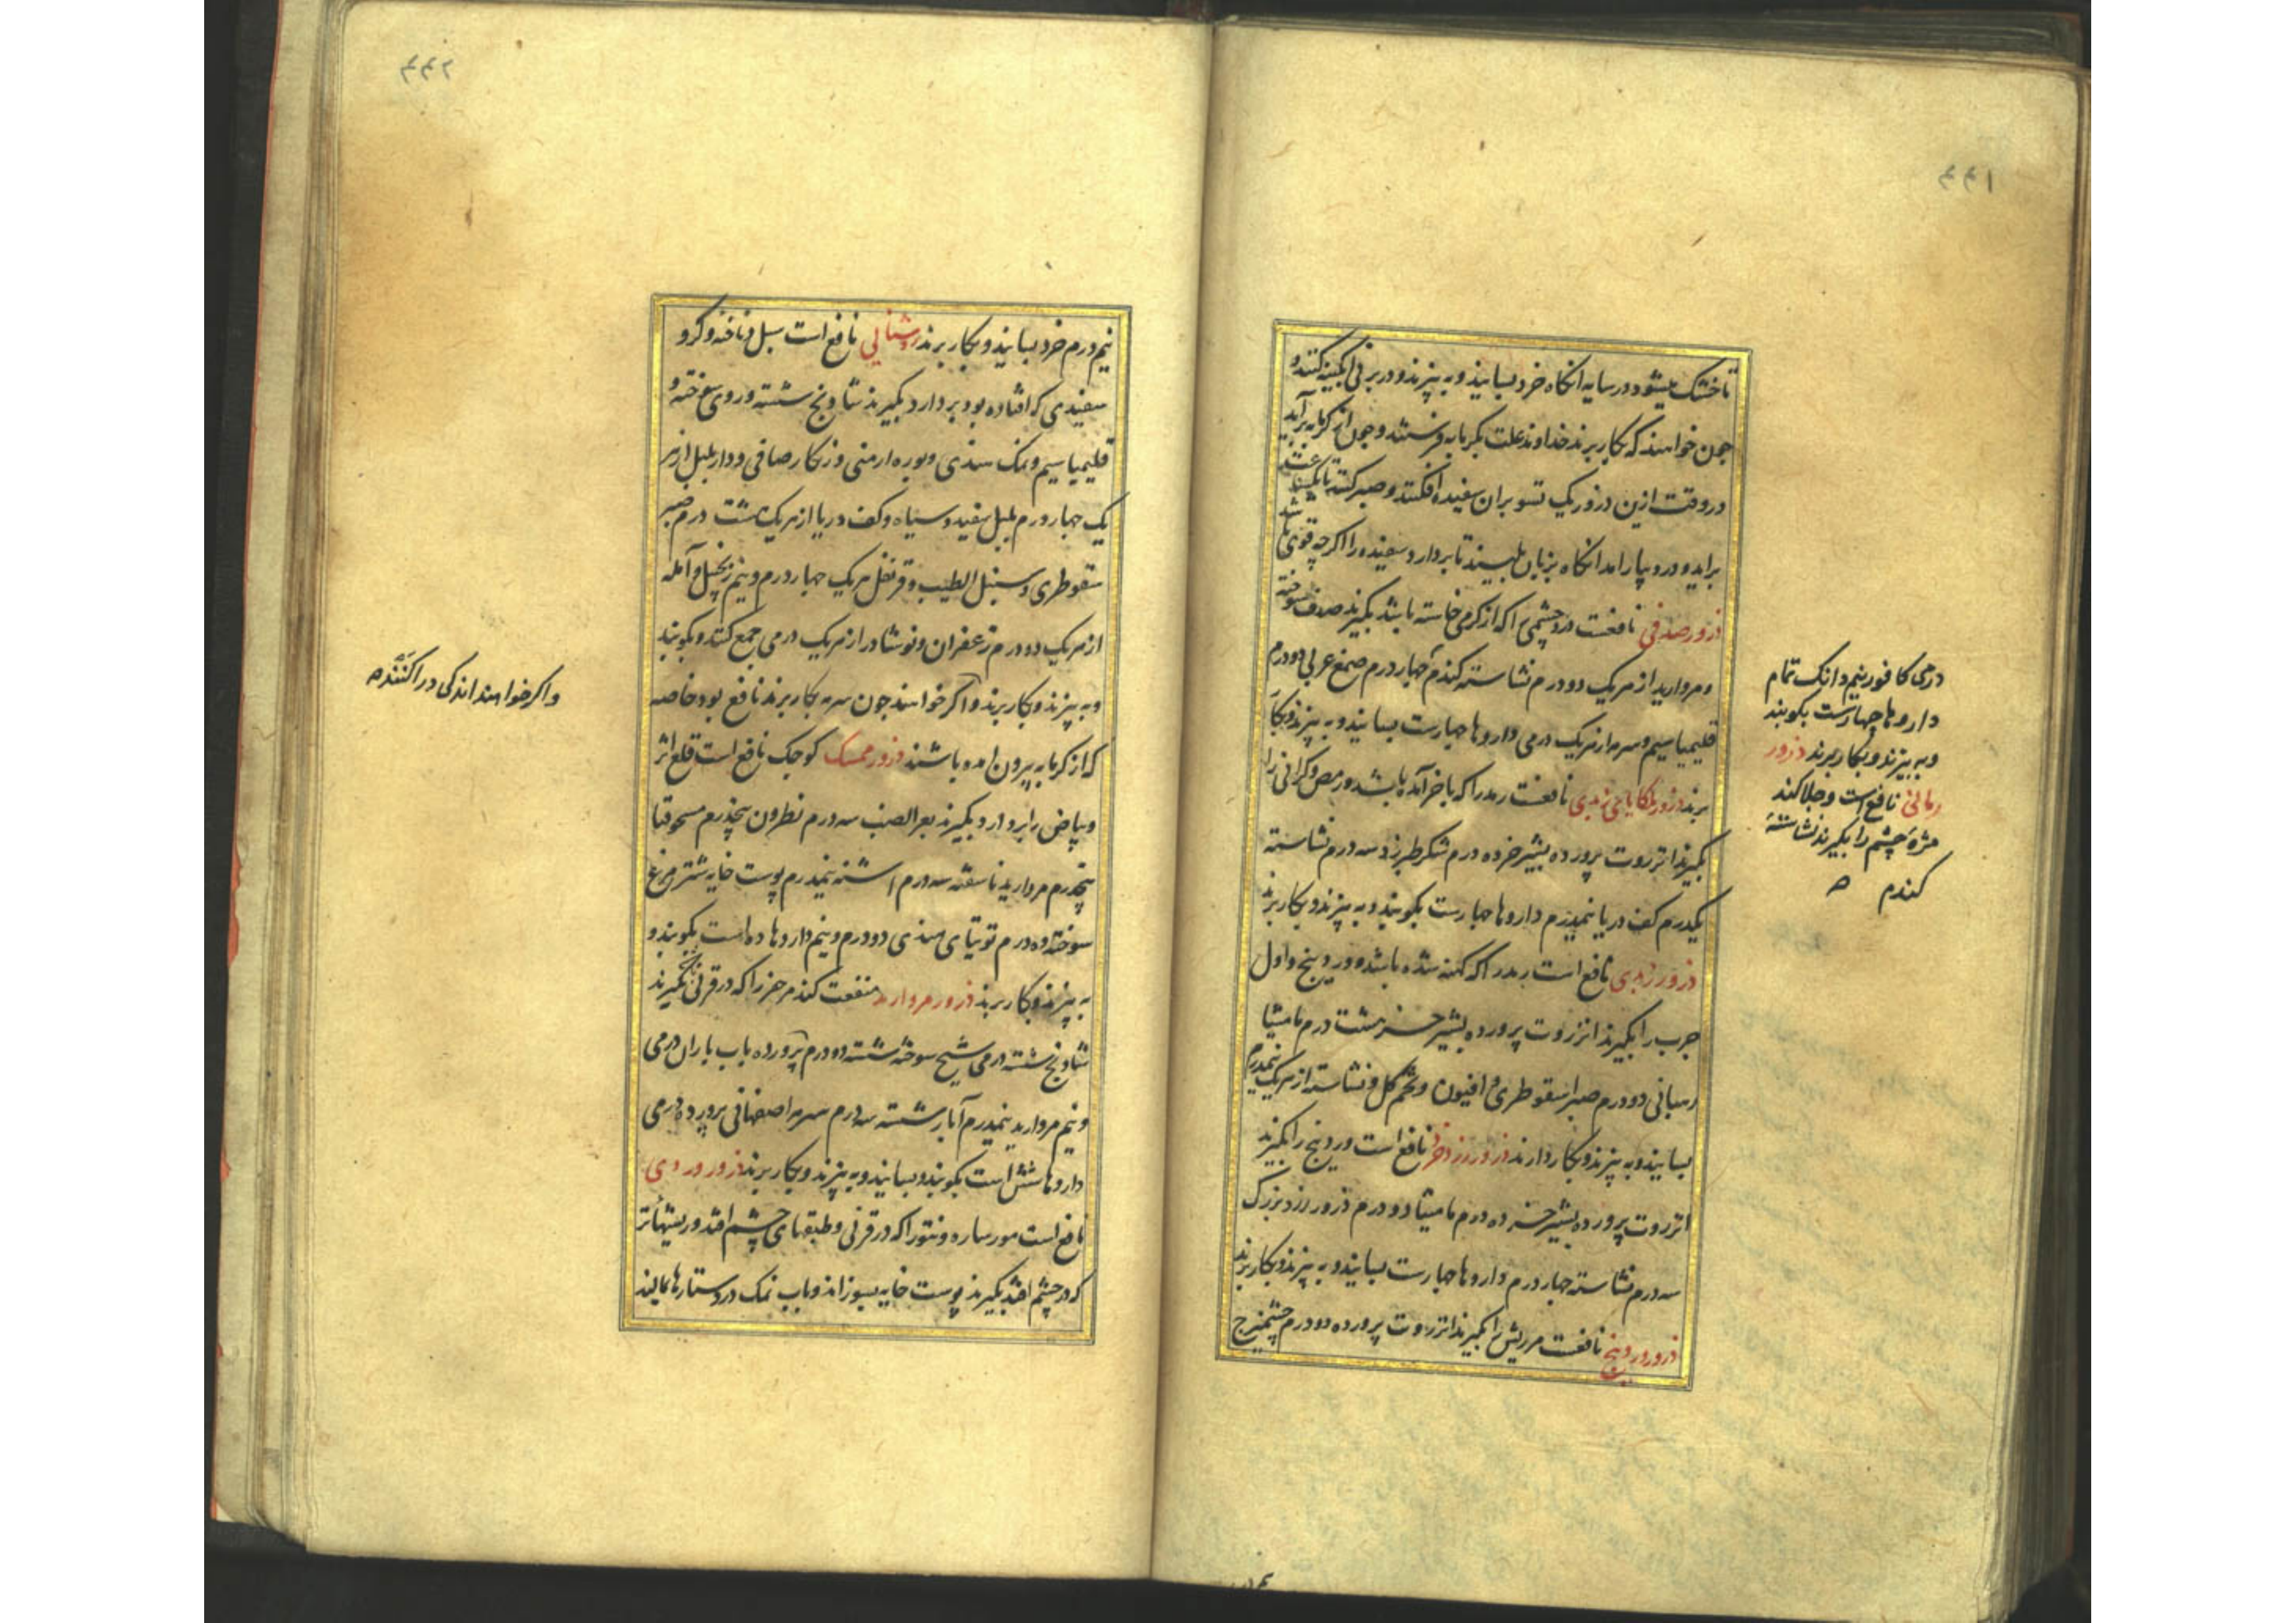 ۴۴۱
تا خشک میشود در سایه انکاه خرد بسایند و به بیزند و در برنی آبگینه کنند و
چون خواهند که بکار برند خداوند علت بکرمابه فرستند و چون از کرمابه برآید
در وقت ازین درور یک تسو بران سفیده افکنند و صبر کنند تا یکساعت
براید و درد بیارامد انکاه بزبان بلیسند تا بردارد سفیده را اکرچه قوی باشد
ذرور صدفی نافعست درد چشمی را که از کرمی خاسته باشد بکیرند صدف سوخته
و مروارید از هریک دو درم نشاسته کندم چهار درم صمغ عربی دو درم
قلیمیا سیم و سرمه از هریک درمی داروها چهارست بسایند و به بیزند و بکار
برند ذرور ملکایای زبدی نافعست رمد را که باخر آمده باشد و رمص و کرانی را
بکیرند انزروت پرورده بشیر خر ده درم شکر طبرزد سه درم نشاسته
یکدرم کف دریا نیمدرم داروها چهارست بکوبند و به بیزند و بکار برند
ذرور زبدی نافع است رمد را که کهنه شده باشد و وردینج و اول
جرب را بکیرند انزروت پرورده بشیر خر هشت درم مامیثا
رهبانی دو درم صبر اسقوطری و افیون و تخم کل و نشاسته از هریک نیمدرم
بسایند و به بیزند و بکار دارند ذرور زرد خرد نافع است وردینج را بکیرند
انزروت پرورده بشیر خر ده درم مامیثا دو درم ذرور زرد بزرک
سه درم نشاسته چهار درم داروها چهارست بسایند و به بیزند و بکار برند
ذرور وردینج نافعست مر ریش را بکیرند انزروت پرورده دو درم چشمیزج
درمی کافور نیم دانک تمام
داروها چهارست بکوبند
و به بیزند و بکار برند ذرور
رمانی نافع است و جلا کند
مژه چشم را بکیرند نشاسته
کندم ه
۴۴۲
نیم درم خرد بسایند و بکار برند روشنایی نافع است سبل و ناخنه و کرو
سفیدی که افتاده بود بردارد بکیرند شاونج شسته و روی سوخته و
قلیمیا سیم و نمک هندی و بوره ارمنی و زنکار صافی و دارپلپل از هر
یک چهار درم پلپل سفید و سیاه و کف دریا از هریک هشت درم صبر
سقوطری و سنبل الطیب و قرنفل هریک چهار درم و نیم زنجبیل و آمله
از هریک دو درم زعفران و نوشادر از هریک درمی جمع کنند و بکوبند
و به بیزند و بکار برند و اکر خواهند چون سرمه بکار برند نافع بود خاصه
که از کرمابه بیرون امده باشند ذرور ممسک کوچک نافع است قلع اثر
و بیاض را بردارد بکیرند بعر الضب سه درم نطرون پنجدرم مسحوقنا
پنجدرم مروارید ناسفته سه درم اشنه نیمدرم پوست خایه شترمرغ
سوخته ده درم توتیای هندی دو درم و نیم داروها ده است بکوبند و
به بیزند و بکار برند ذرور مروارید منفعت کند مر حفر را که در قرنی بکیرند
شاونج شسته درمی شیح سوخته شسته دو درم پرورده باب باران درمی
و نیم مروارید نیمدرم آبار شسته سه درم سرمه اصفهانی پرورده درمی
داروها شش است بکوبند و بسایند و به بیزند و بکار برند ذرور وردی
نافع است مورساره و نتو را که در قرنی و طبقهای چشم افتد و ریشها تر
که در چشم افتد بکیرند پوست خایه بسوزانند و باب نمک در دستارها بمالند
و اکر خواهند اندکی در اکنند ه